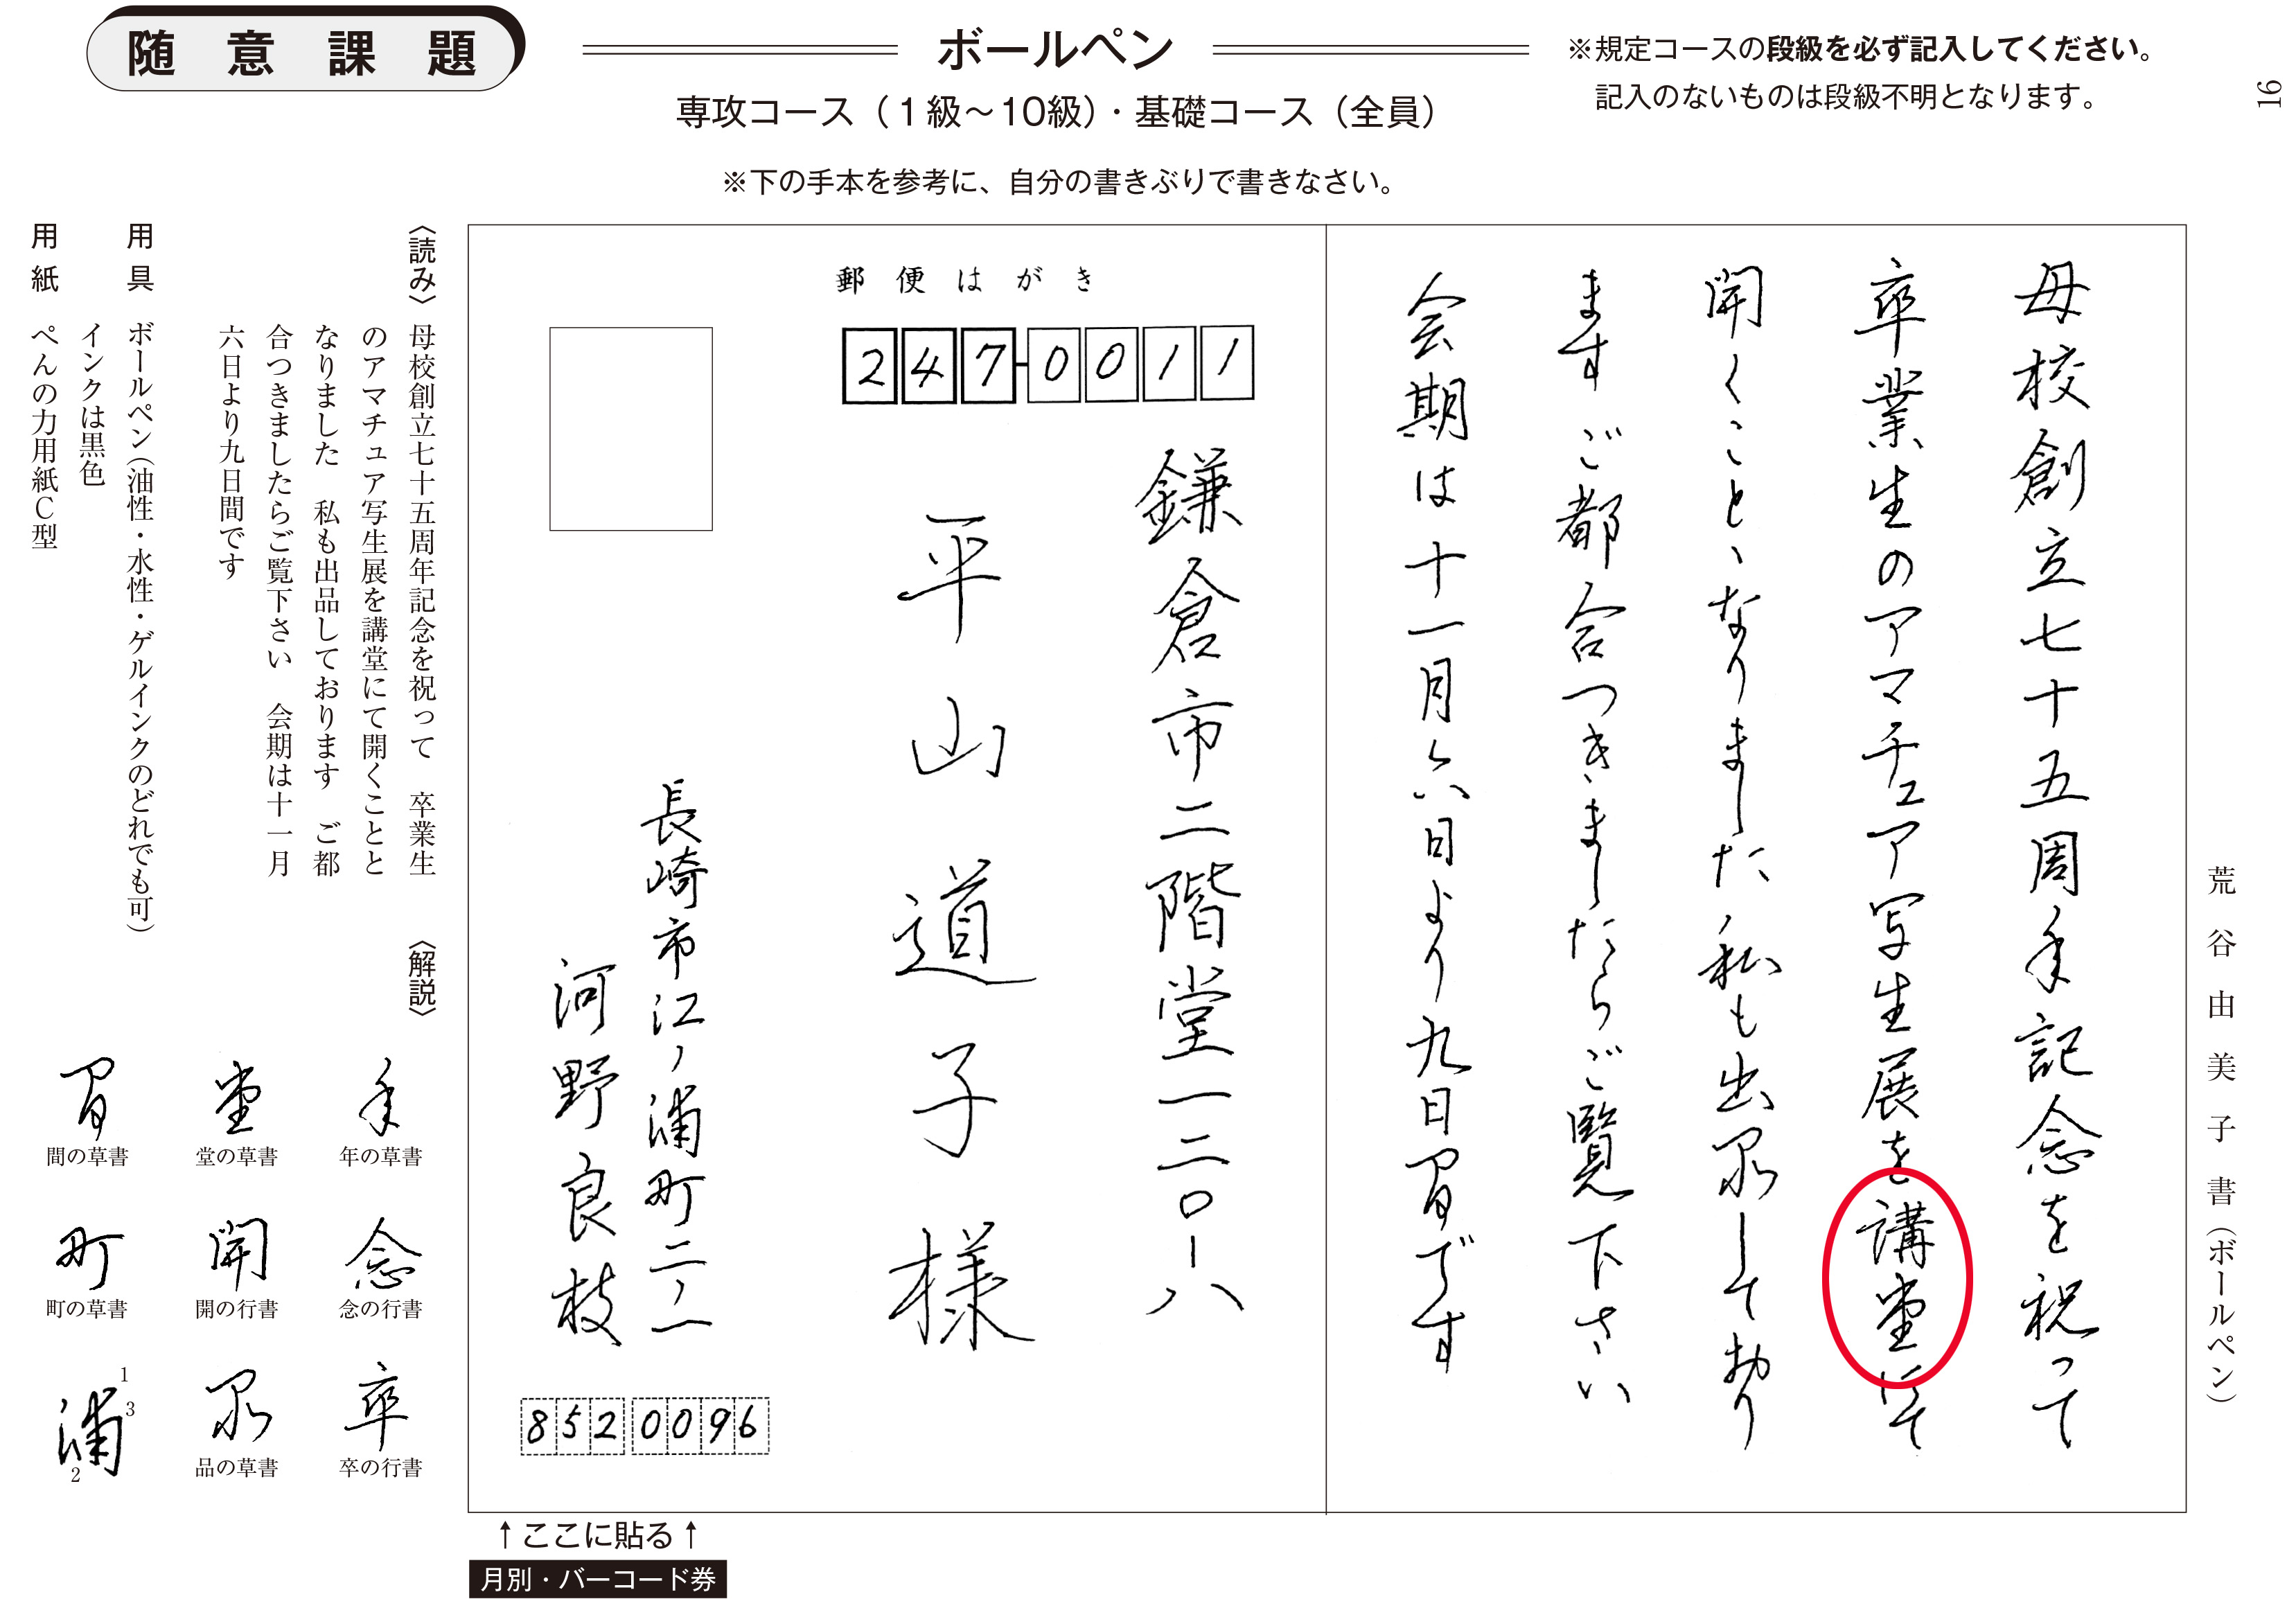 随意課題
ボールペン
専攻コース（1級～10級）・基礎コース（全員）
※規定コースの段級を必ず記入してください。
記入のないものは段級不明となります。
16
※下の手本を参考に、自分の書きぶりで書きなさい。
荒谷由美子書（ボールペン）
母校創立七十五周年記念を祝って
卒業生のアマチュア写生展を講堂にて
開くこととなりました 私も出品しており
ます ご都合つきましたらご覧下さい
会期は十一月六日より九日間です
郵便はがき
247-0011
鎌倉市二階堂一二〇ー八
平山道子様
長崎市江ノ浦町二ノ一
河野良枝
852 0096
↑ここに貼る↑
月別・バーコード券
〈読み〉 母校創立七十五周年記念を祝って 卒業生
のアマチュア写生展を講堂にて開くことと
なりました 私も出品しております ご都
合つきましたらご覧下さい 会期は十一月
六日より九日間です
用具 ボールペン（油性・水性・ゲルインクのどれでも可）
インクは黒色
用紙 ぺんの力用紙C型
〈解説〉
年
年の草書
念
念の行書
卒
卒の行書
堂
堂の草書
開
開の行書
品
品の草書
間
間の草書
町
町の草書
浦
1
3
2